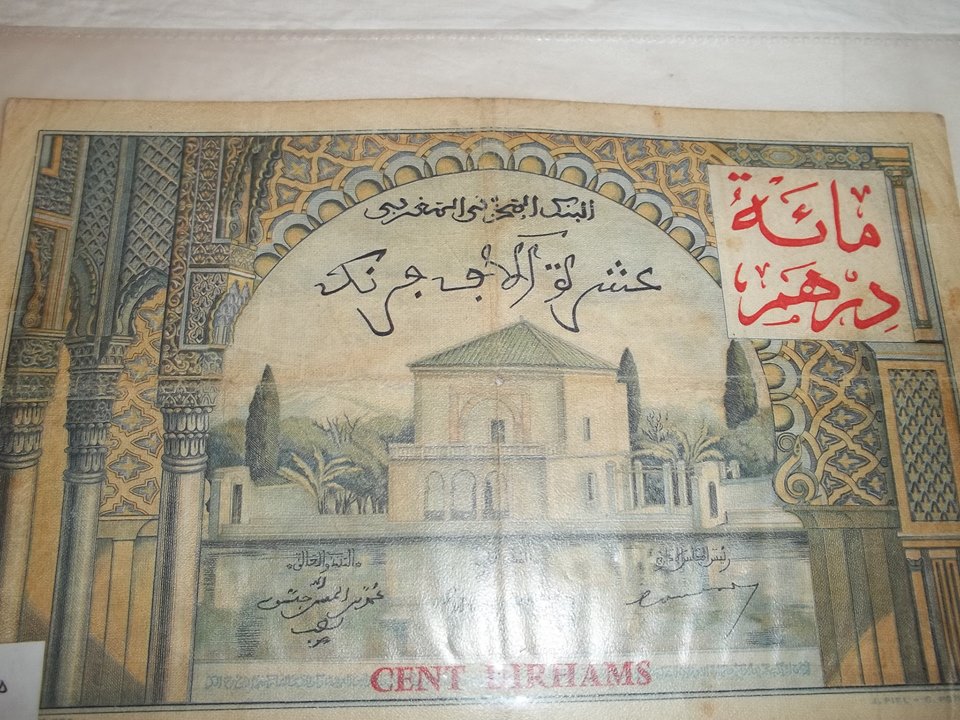 البنك المخزني المغربي
عشرة آلاف فرنك
مائة
درهم
رئيس المجلس الاداري
CENT DIRHAMS